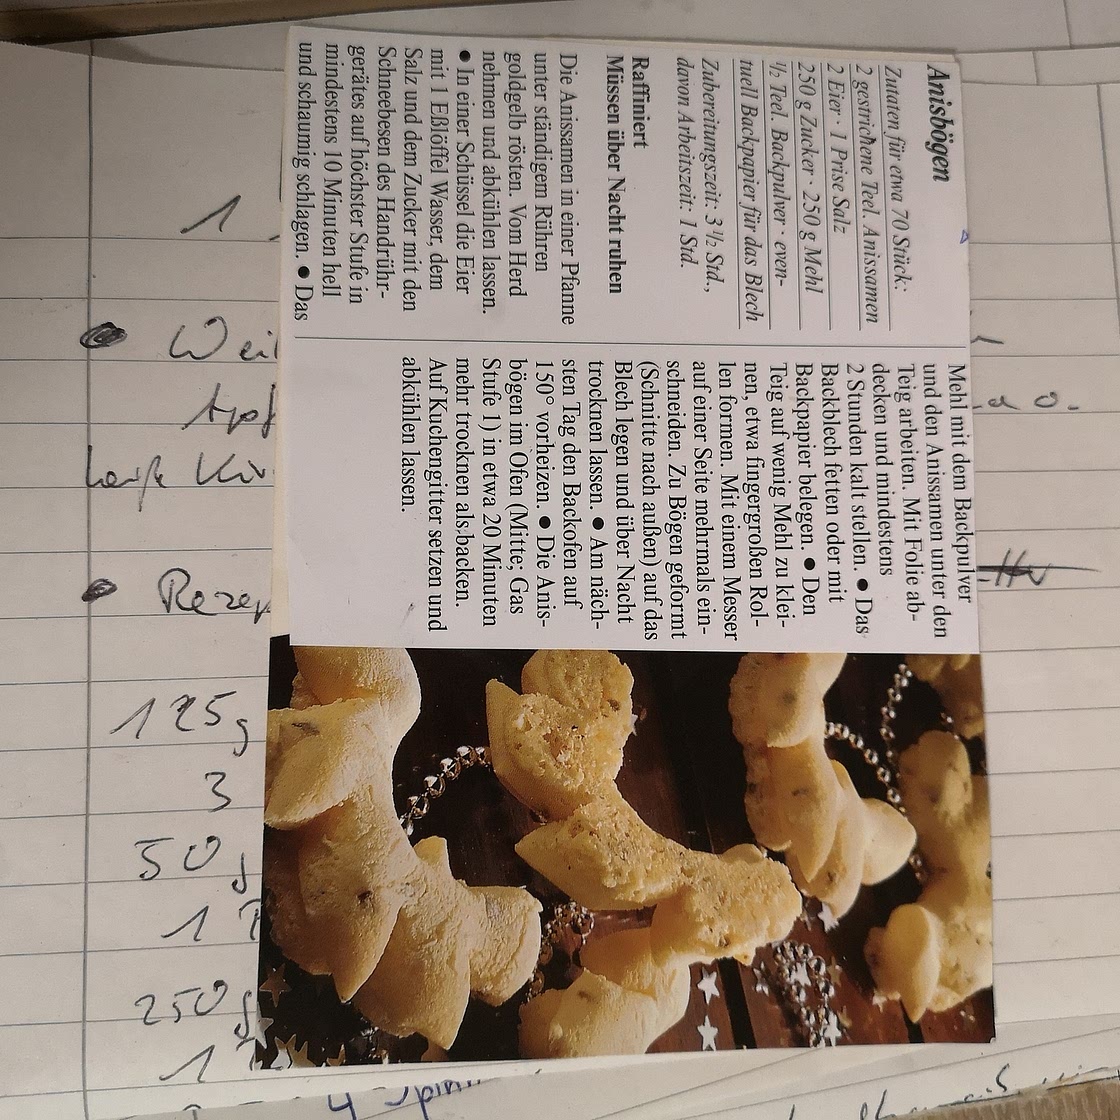 Anisbögen
Zutaten für etwa 70 Stück:
2 gestrichene Teel. Anissamen
2 Eier · 1 Prise Salz
250 g Zucker · 250 g Mehl
½ Teel. Backpulver · even-
tuell Backpapier für das Blech
Zubereitungszeit: 3 ½ Std.,
davon Arbeitszeit: 1 Std.
Raffiniert
Müssen über Nacht ruhen
Die Anissamen in einer Pfanne
unter ständigem Rühren
goldgelb rösten. Vom Herd
nehmen und abkühlen lassen.
● In einer Schüssel die Eier
mit 1 Eßlöffel Wasser, dem
Salz und dem Zucker mit den
Schneebesen des Handrühr-
gerätes auf höchster Stufe in
mindestens 10 Minuten hell
und schaumig schlagen. ● Das
Mehl mit dem Backpulver
und den Anissamen unter den
Teig arbeiten. Mit Folie ab-
decken und mindestens
2 Stunden kalt stellen. ● Das
Backblech fetten oder mit
Backpapier belegen. ● Den
Teig auf wenig Mehl zu klei-
nen, etwa fingergroßen Rol-
len formen. Mit einem Messer
auf einer Seite mehrmals ein-
schneiden. Zu Bögen geformt
(Schnitte nach außen) auf das
Blech legen und über Nacht
trocknen lassen. ● Am näch-
sten Tag den Backofen auf
150° vorheizen. ● Die Anis-
bögen im Ofen (Mitte; Gas
Stufe 1) in etwa 20 Minuten
mehr trocknen als backen.
Auf Kuchengitter setzen und
abkühlen lassen.
1
● Weih
● Rezep
125g
3
50 g
1 T
250 g
1